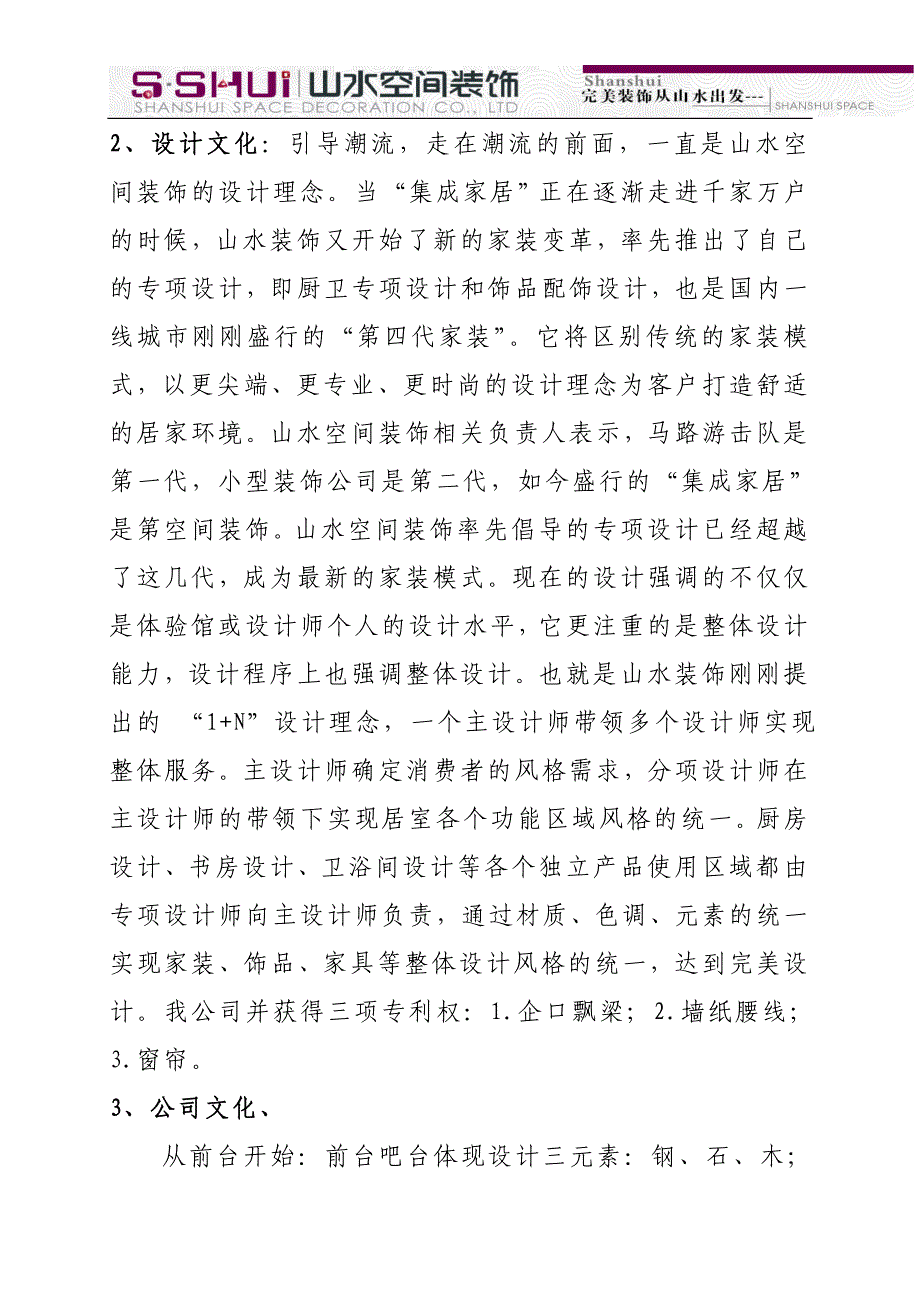 S·SHUi 山水空间装饰
SHANSHUI SPACE DECORATION CO., LTD
Shanshui
完美装饰从山水出发---
SHANSHUI SPACE
2、设计文化：引导潮流，走在潮流的前面，一直是山水空
间装饰的设计理念。当“集成家居”正在逐渐走进千家万户
的时候，山水装饰又开始了新的家装变革，率先推出了自己
的专项设计，即厨卫专项设计和饰品配饰设计，也是国内一
线城市刚刚盛行的“第四代家装”。它将区别传统的家装模
式，以更尖端、更专业、更时尚的设计理念为客户打造舒适
的居家环境。山水空间装饰相关负责人表示，马路游击队是
第一代，小型装饰公司是第二代，如今盛行的“集成家居”
是第空间装饰。山水空间装饰率先倡导的专项设计已经超越
了这几代，成为最新的家装模式。现在的设计强调的不仅仅
是体验馆或设计师个人的设计水平，它更注重的是整体设计
能力，设计程序上也强调整体设计。也就是山水装饰刚刚提
出的 “1+N”设计理念，一个主设计师带领多个设计师实现
整体服务。主设计师确定消费者的风格需求，分项设计师在
主设计师的带领下实现居室各个功能区域风格的统一。厨房
设计、书房设计、卫浴间设计等各个独立产品使用区域都由
专项设计师向主设计师负责，通过材质、色调、元素的统一
实现家装、饰品、家具等整体设计风格的统一，达到完美设
计。我公司并获得三项专利权：1.企口飘梁；2.墙纸腰线；
3.窗帘。
3、公司文化、
从前台开始：前台吧台体现设计三元素：钢、石、木；